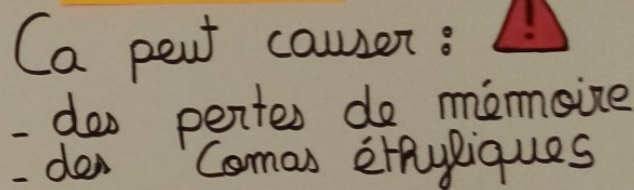 Ca peut causer : !
- des pertes de mémoire
- des Comas éthyliques